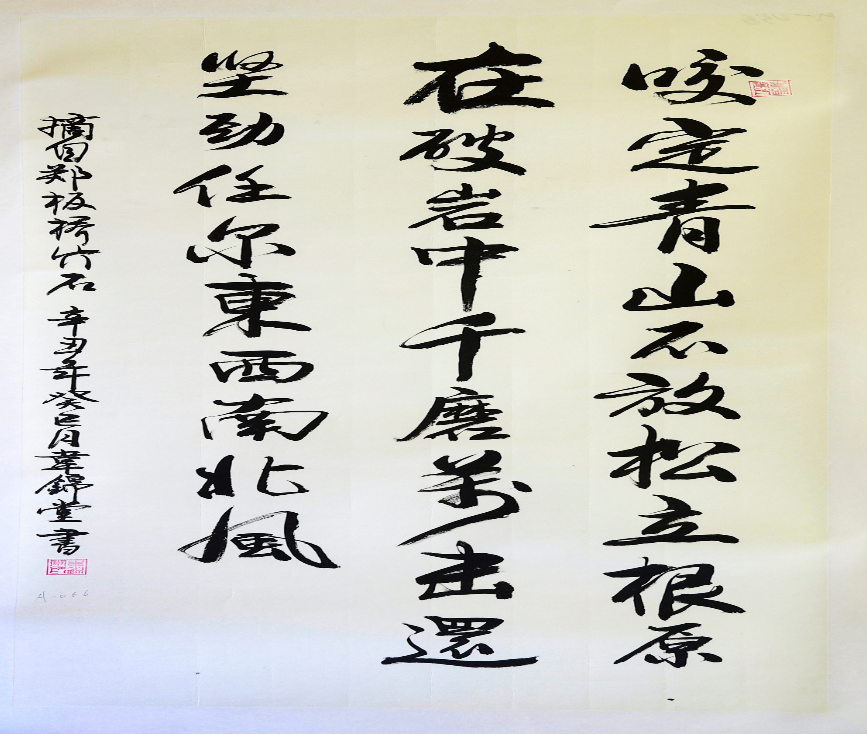 咬定青山不放松立根原
在破岩中千磨萬击還
坚劲任尔東西南北風
摘自郑板桥竹石 辛丑年癸巳月韋錦堂書